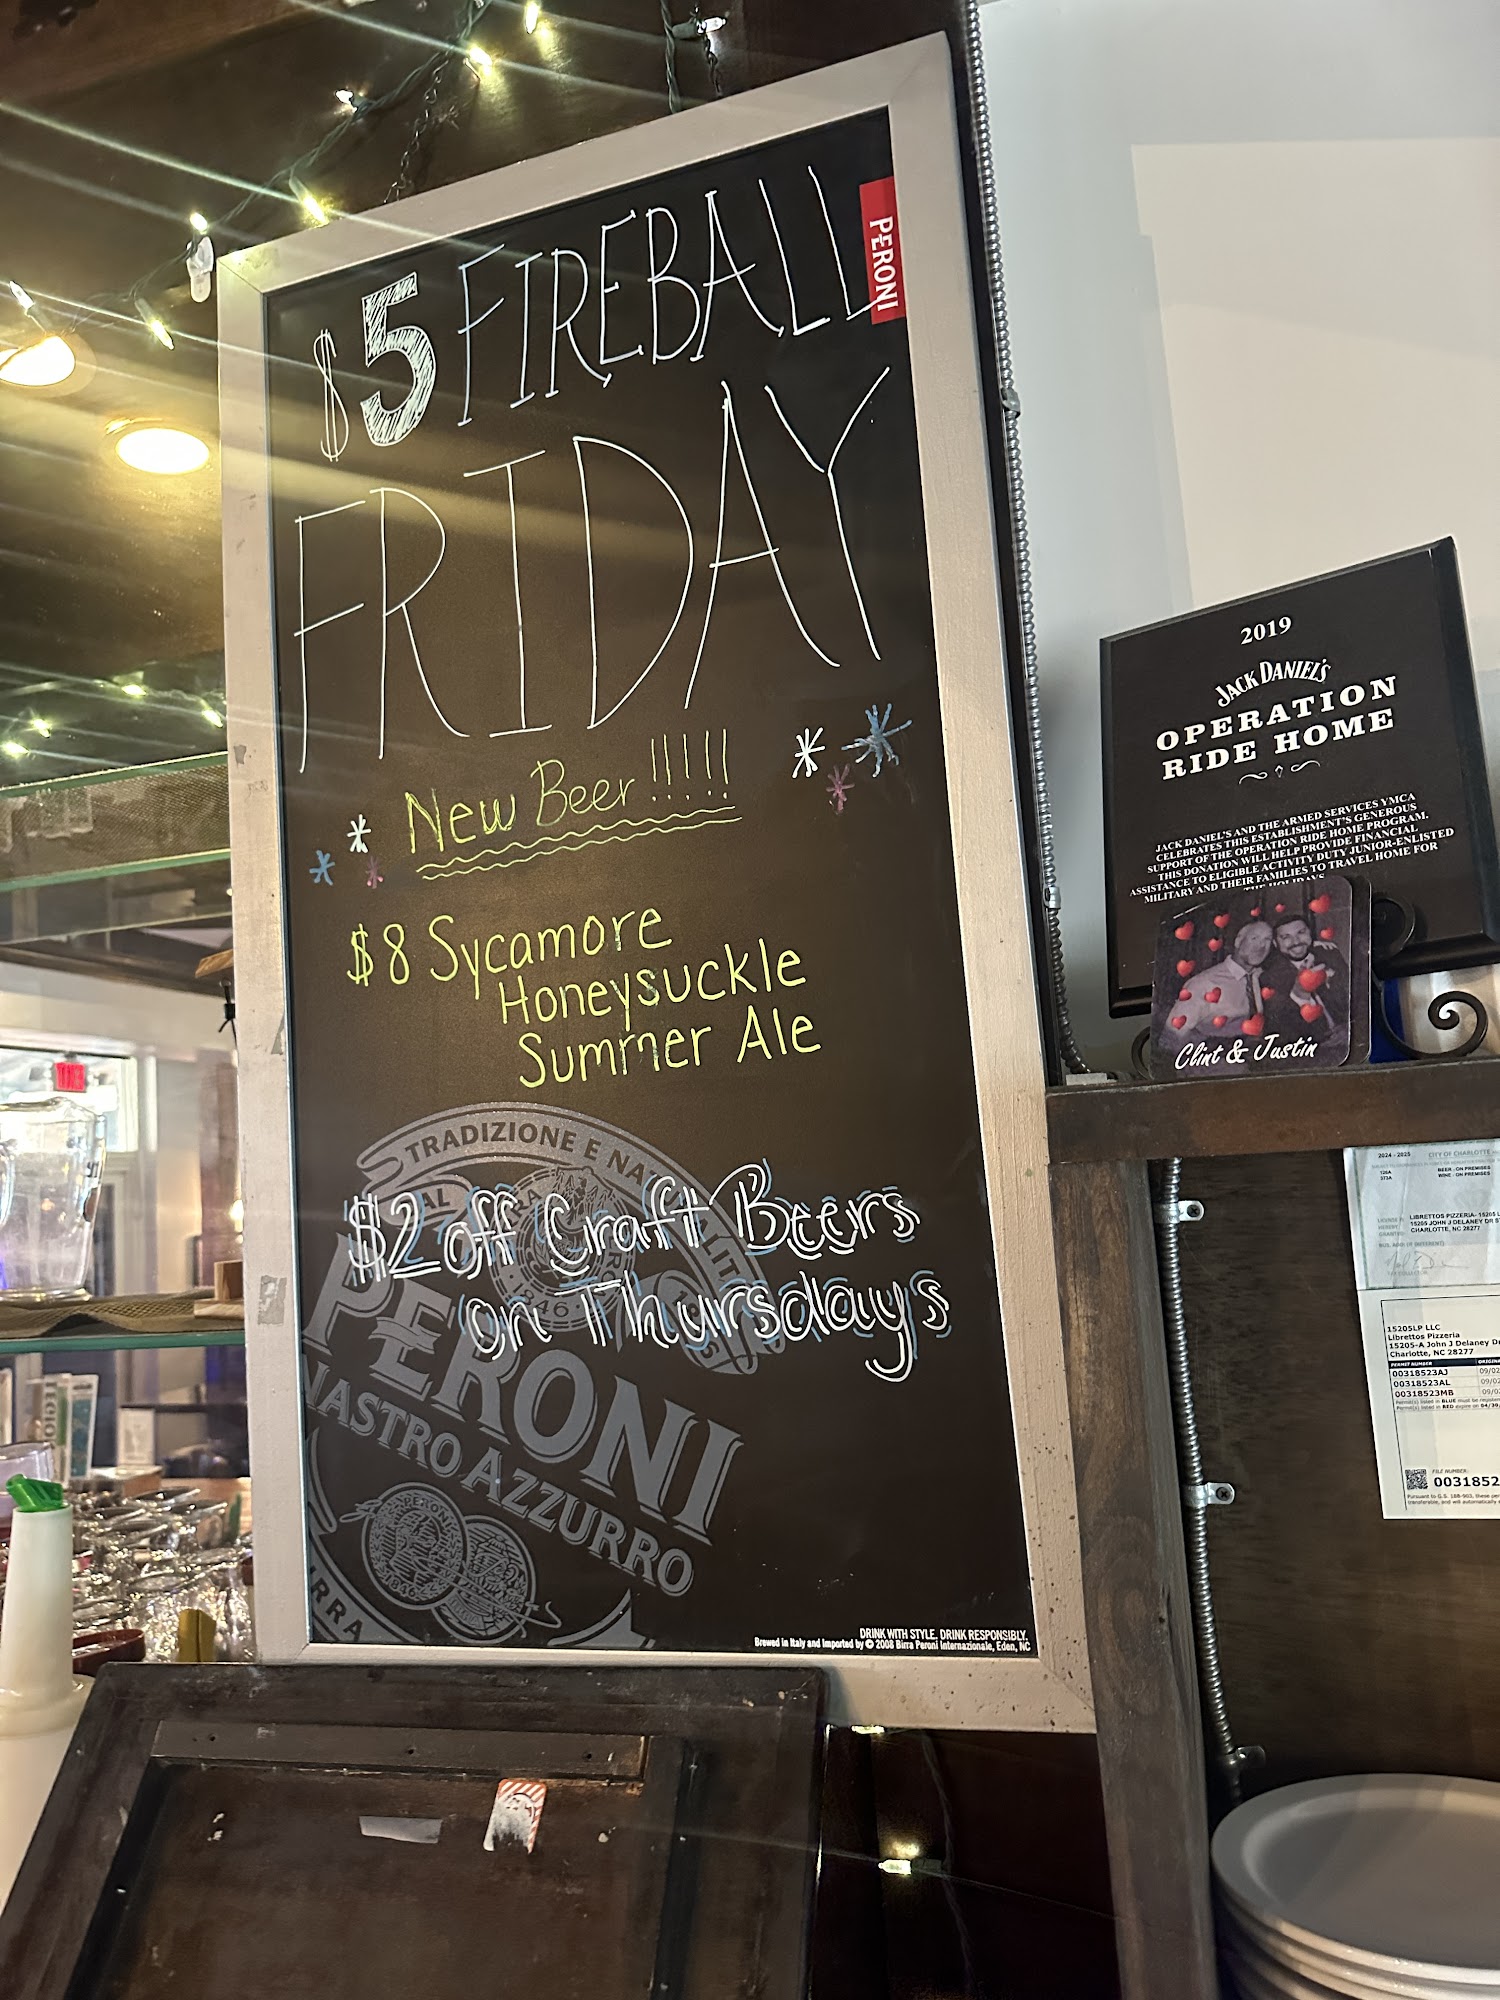 $5 FIREBALL
FRIDAY
PERONI
New Beer!!!!!
$8 Sycamore
Honeysuckle
Summer Ale
TRADIZIONE E
$2 off Craft Beers
on Thursdays
1846
PERONI
NASTRO AZZURRO
PERONI
1846
DRINK WITH STYLE. DRINK RESPONSIBLY.
Brewed in Italy and imported by © 2008 Birra Peroni Internazionale, Eden, NC
2019
JACK DANIEL'S
OPERATION
RIDE HOME
JACK DANIEL'S AND THE ARMED SERVICES YMCA
CELEBRATES THIS ESTABLISHMENT'S GENEROUS
SUPPORT OF THE OPERATION RIDE HOME PROGRAM.
THIS DONATION WILL HELP PROVIDE FINANCIAL
ASSISTANCE TO ELIGIBLE ACTIVITY DUTY JUNIOR-ENLISTED
MILITARY AND THEIR FAMILIES TO TRAVEL HOME FOR
THE HOLIDAYS
Clint & Justin
2024 - 2025 CITY OF CHARLOTTE
BEER - ON PREMISES
WINE - ON PREMISES
LIBRETTOS PIZZERIA- 15205
15205 JOHN J DELANEY DR
CHARLOTTE, NC 28277
15205LP LLC
Librettos Pizzeria
15205-A John J Delaney
Charlotte, NC 28277
PERMIT NUMBER
00318523AJ
00318523AL
00318523MB
FILE NUMBER:
0031852